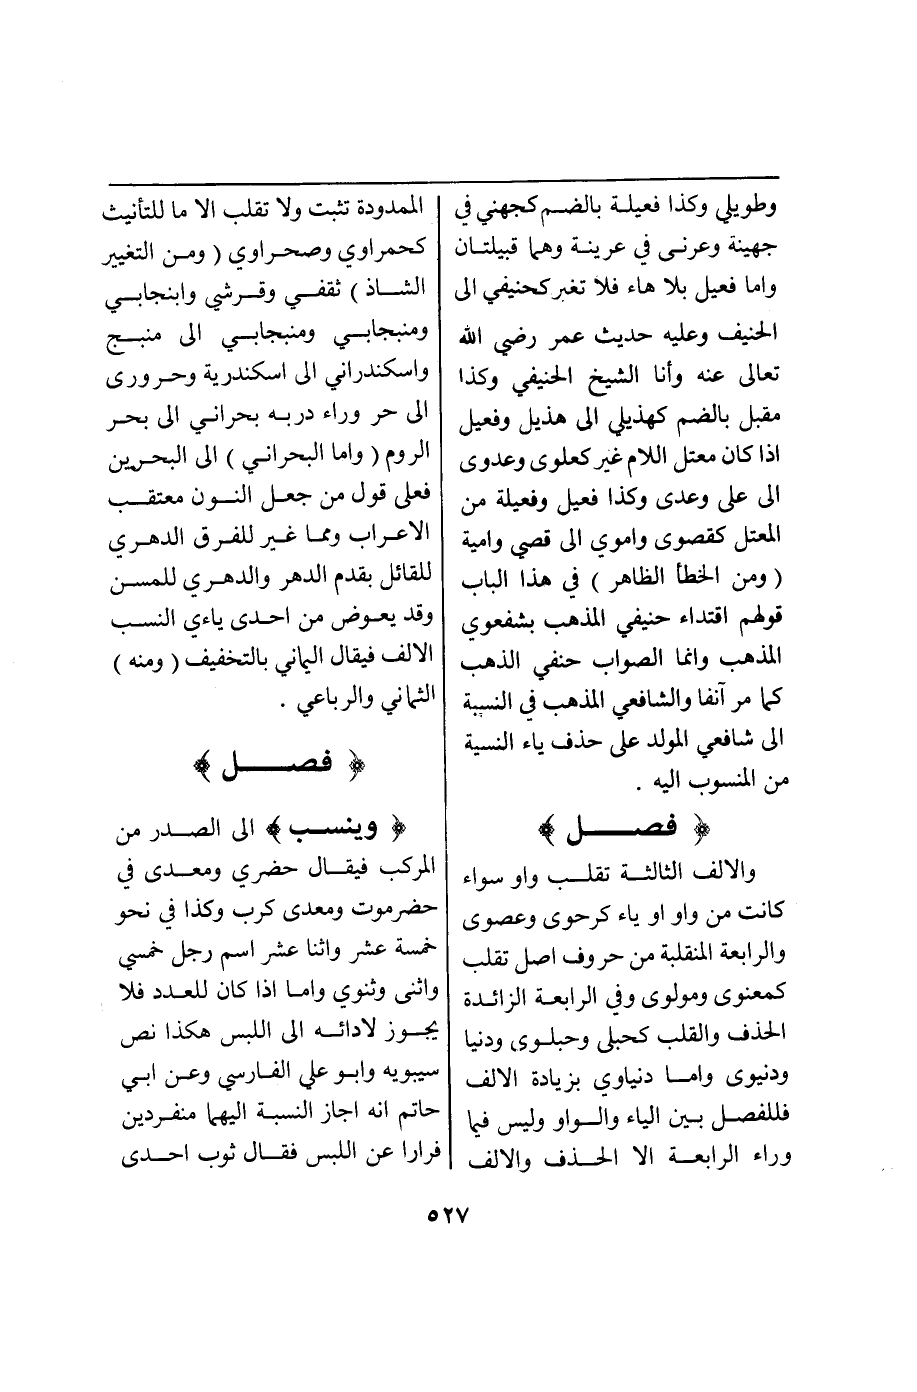 وطويلي وكذا فعيلة بالضم كجهني في
جهينة وعرنى في عرينة وهما قبيلتان
واما فعيل بلا هاء فلا تغير كحنيفي الى
الحنيف وعليه حديث عمر رضي الله
تعالى عنه وأنا الشيخ الحنيفي وكذا
مقبل بالضم كهذيلي الى هذيل وفعيل
اذا كان معتل اللام غير كعلوى وعدوى
الى على وعدى وكذا فعيل وفعيلة من
المعتل كقصوى واموي الى قصي وامية
( ومن الخطأ الظاهر ) في هذا الباب
قولهم اقتداء حنيفي المذهب بشفعوي
المذهب وانما الصواب حنفي الذهب
كما مر آنفا والشافعي المذهب في النسبة
الى شافعي المولد على حذف ياء النسية
من المنسوب اليه .
﴿ فصل ﴾
والالف الثالثة تقلب واو سواء
كانت من واو او ياء كرحوى وعصوى
والرابعة المنقلبة من حروف اصل تقلب
كمعنوى ومولوى وفي الرابعة الزائدة
الحذف والقلب كحبلى وحبلوى ودنيا
ودنيوى واما دنياوي بزيادة الالف
فللفصل بين الياء والواو وليس فيما
وراء الرابعة الا الحذف والالف
الممدودة تثبت ولا تقلب الا ما للتأنيث
كحمراوي وصحراوي ( ومن التغيير
الشاذ ) ثقفي وقرشي وابنجابي
ومنبجابي ومنبجابي الى منبج
واسكندراني الى اسكندرية وحرورى
الى حر وراء دربه بحراني الى بحر
الروم ( واما البحراني ) الى البحرين
فعلى قول من جعل النون معتقب
الاعراب ومما غير للفرق الدهري
للقائل بقدم الدهر والدهرى للمسن
وقد يعوض من احدى ياءي النسب
الالف فيقال اليماني بالتخفيف ( ومنه )
الثماني والرباعي .
﴿ فصل ﴾
﴿ وينسب ﴾ الى الصدر من
المركب فيقال حضري ومعدى في
حضرموت ومعدى كرب وكذا في نحو
خمسة عشر واثنا عشر اسم رجل خمسي
واثنى وثنوي واما اذا كان للعدد فلا
يجوز لادائه الى اللبس هكذا نص
سيبويه وابو علي الفارسي وعن ابي
حاتم انه اجاز النسبة اليهما منفردين
فرارا عن اللبس فقال ثوب احدى
٥٢٧